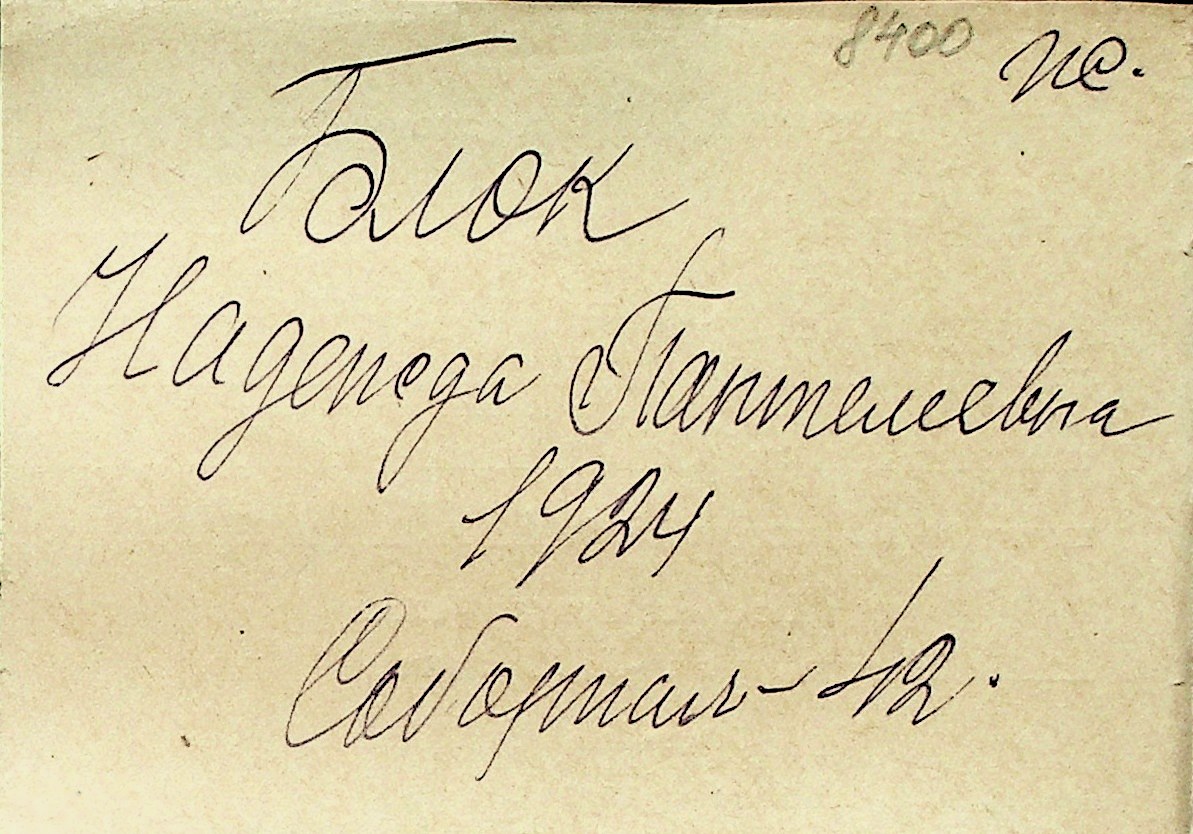 8400 ж.
Блок
Надежда Пантелеевна
1924
Соборная - 42.